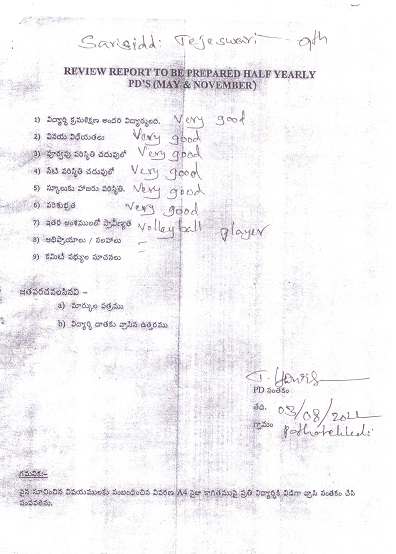 Sarisiddi Tejeswari - 9th
REVIEW REPORT TO BE PREPARED HALF YEARLY
PD'S (MAY & NOVEMBER)
1) విద్యార్థి క్రమశిక్షణ అందరి విద్యార్థులది. Very good
2) వినయ విధేయతలు Very good
3) పూర్వపు పరిస్థితి చదువులో Very good
4) నేటి పరిస్థితి చదువులో Very good
5) స్కూలుకు హాజరు పరిస్థితి. Very good
6) పరిశుభ్రత Very good
7) ఇతర అంశములలో ప్రావీణ్యత volleyball player
8) అభిప్రాయాలు / సలహాలు =
9) కమిటీ సభ్యుల సూచనలు
జతపరచవలసినవి -
a) మార్కుల పత్రము
b) విద్యార్థి దాతకు వ్రాసిన ఉత్తరము
PD సంతకం
తేది. 03/08/2022
గ్రామం
గమనిక:-
పైన సూచించిన విషయములకు సంబంధించిన వివరణ A4 సైజు కాగితముపై ప్రతి విద్యార్థికి విడిగా వ్రాసి సంతకం చేసి
పంపవలెను.